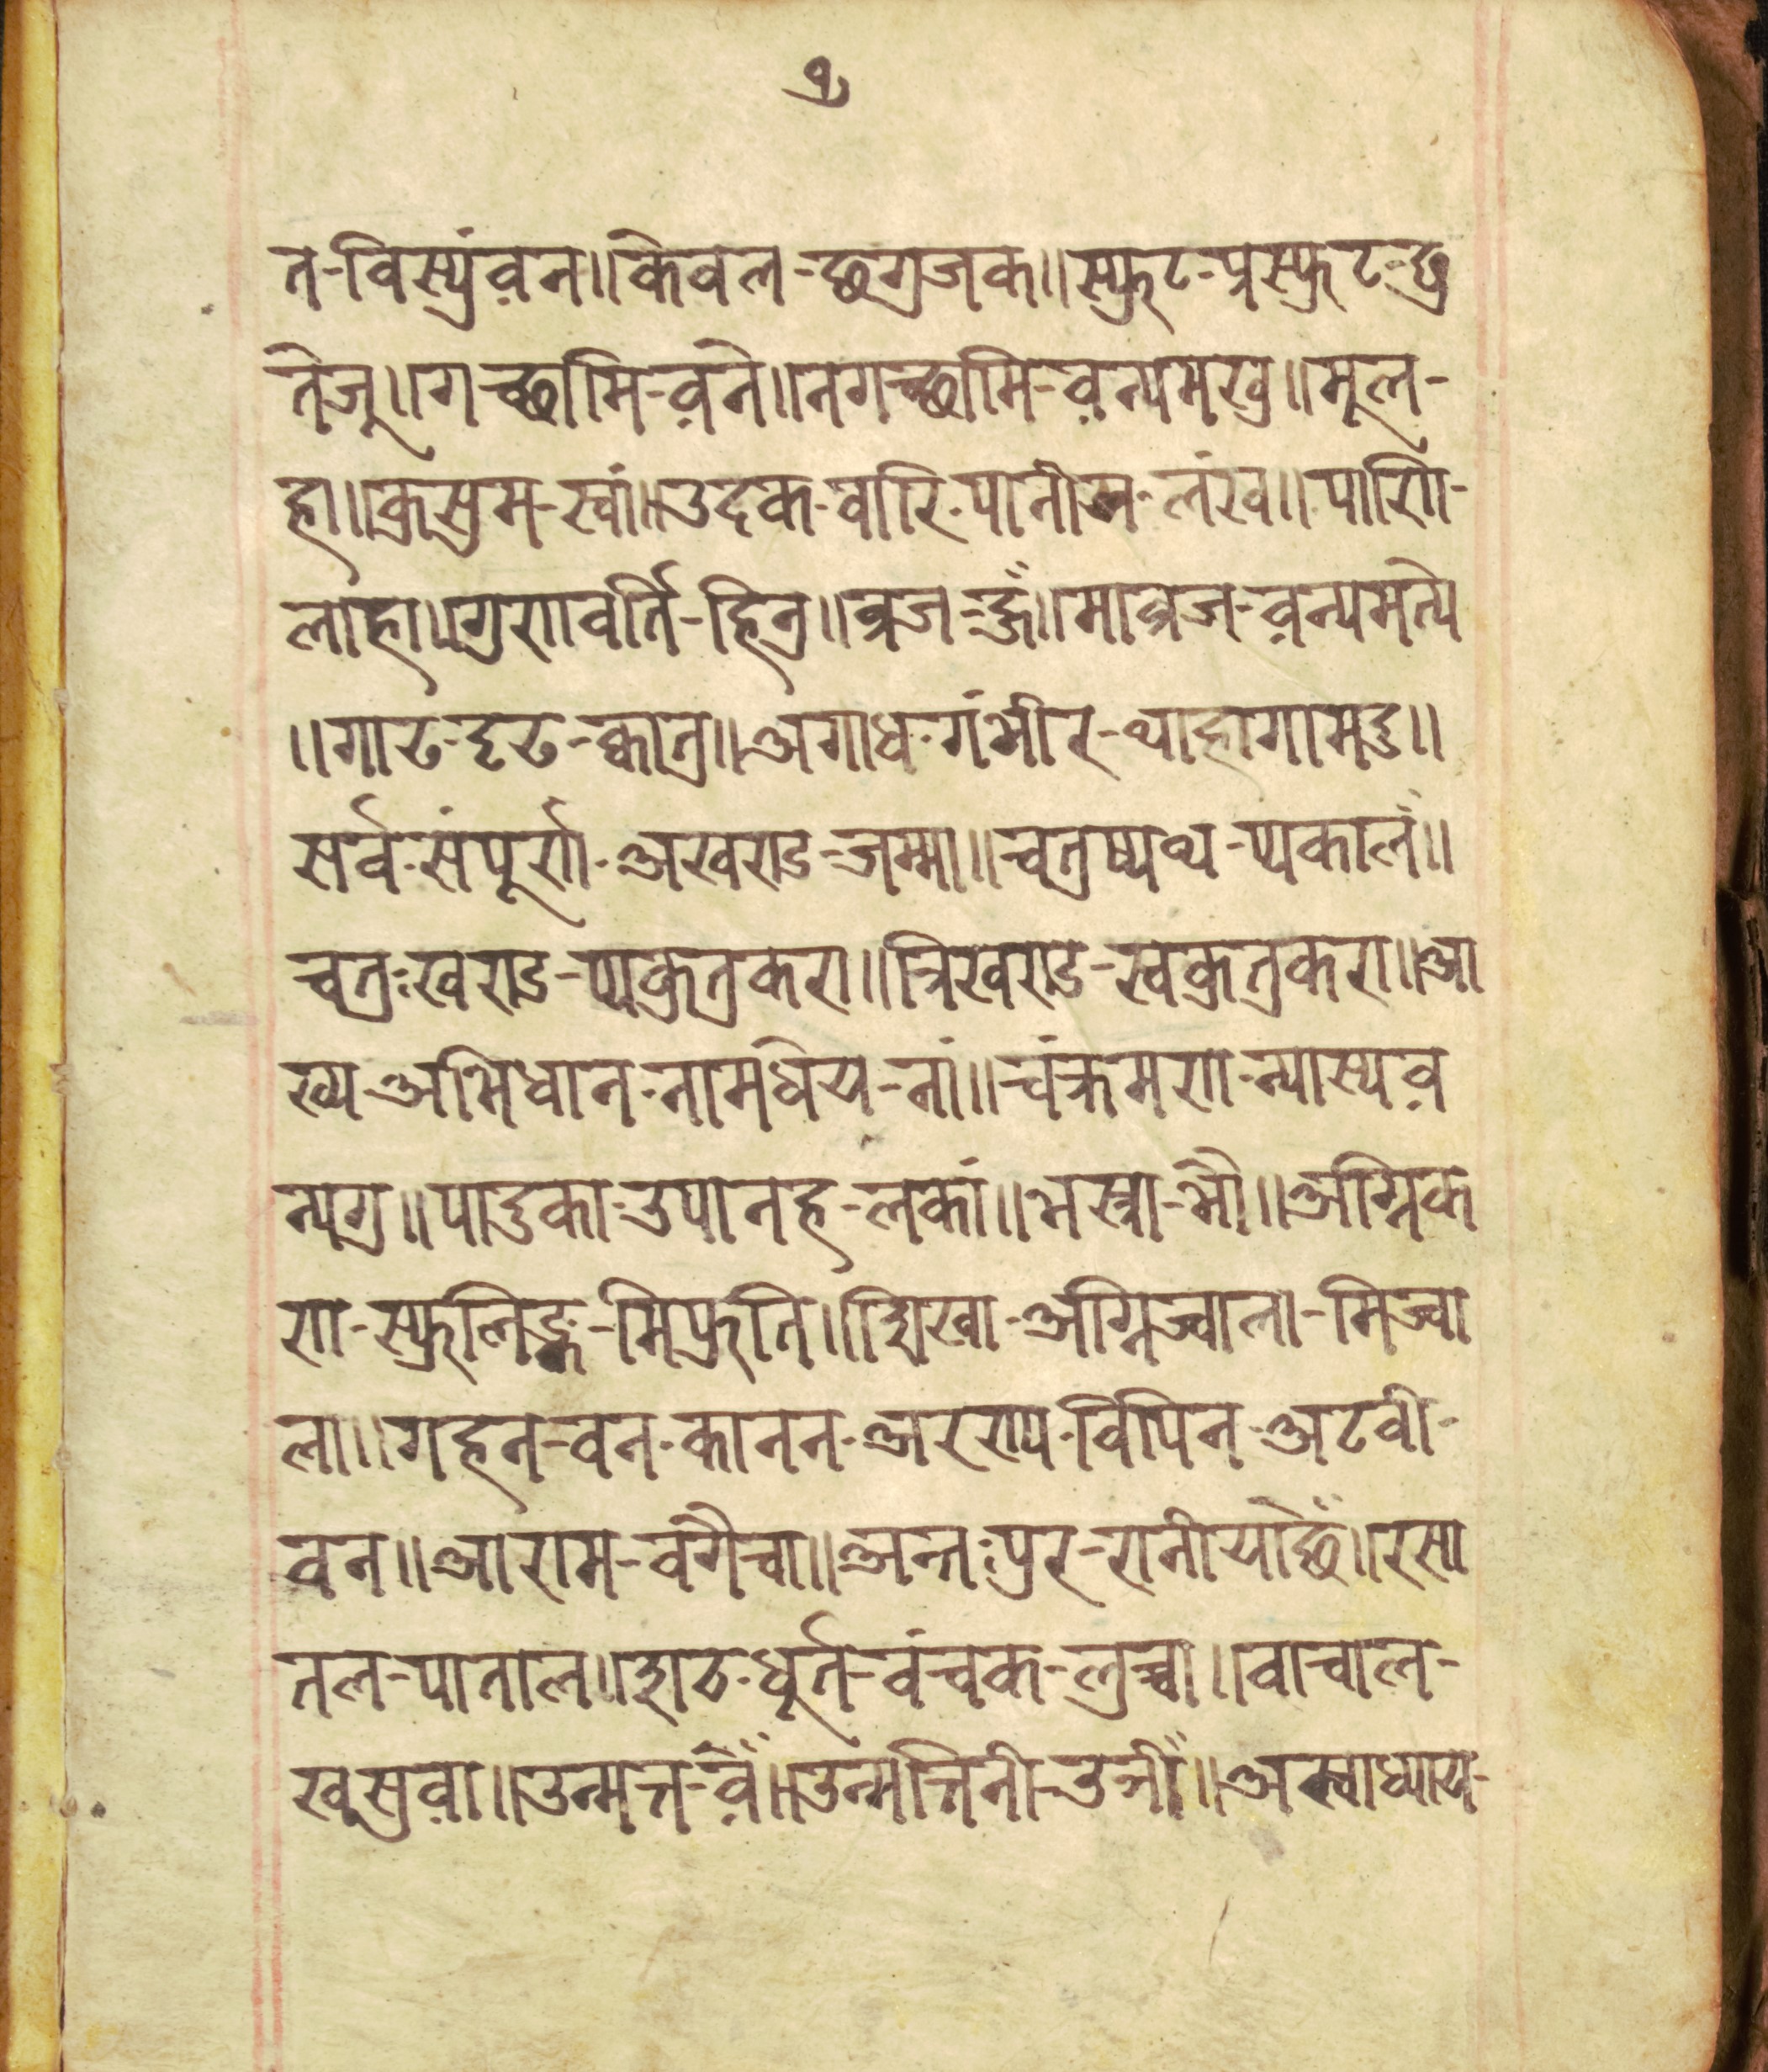 १
त-विस्यंव़न॥केवल-छगुजक॥स्फुट-प्रस्फुट-छु
तेजू॥गच्छामि-व़ने॥नगच्छामि-व़न्यमखु॥मूल-
हा॥कुसुम-स्वां॥उदक-वारि-पानीय-लंख॥पाणि-
लाहा॥गुणवर्ति-हितु॥व्रज-हुँ॥माव्रज-व़न्यमत्ये
॥गाढ-दृढ-क्वातु॥अगाध-गंभीर-थाहागामदु॥
सर्व-संपूर्ण-अखण्ड-जम्मा॥चतुष्यथ-प्यकालं॥
चतुःखण्ड-प्यकुतकुरा॥त्रिखण्ड-स्वकुतकुरा॥आ
ख्य-अभिधान-नामधेय-नां॥चंक्रमण-न्यास्यव़
न्यगु॥पादुका-उपानह-लकां॥भस्त्रा-भौ॥अग्निक
ण-स्फुलिङ्ग-मिफुति॥शिखा-अग्निज्वाला-मिज्वा
ला॥गहन-वन-कानन-अरण्य-विपिन-अटवी-
वन॥आराम-वगैचा॥अन्तःपुर-रानीयाछेँ॥रसा
तल-पाताल॥शठ-धूर्त-वंचक-लुच्चा॥वाचाल-
खूसुव़ा॥उन्मत्त-व़ेँ॥उन्मत्तिनी-उनीँ॥अस्वाध्याय-